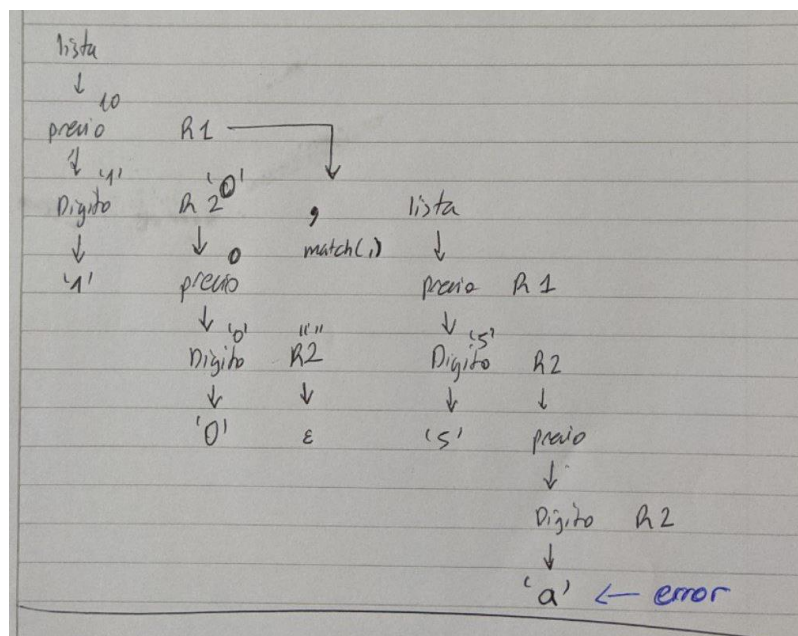 lista
↓ 10
precio R1
↓ '1' '0'
Digito R2 , lista
↓ ↓ 0 match(,) ↓
'1' precio precio R1
↓ '0' "" ↓ '5'
Digito R2 Digito R2
↓ ↓ ↓ ↓
'0' ε '5' precio
↓
Digito R2
↓
'a' ← error